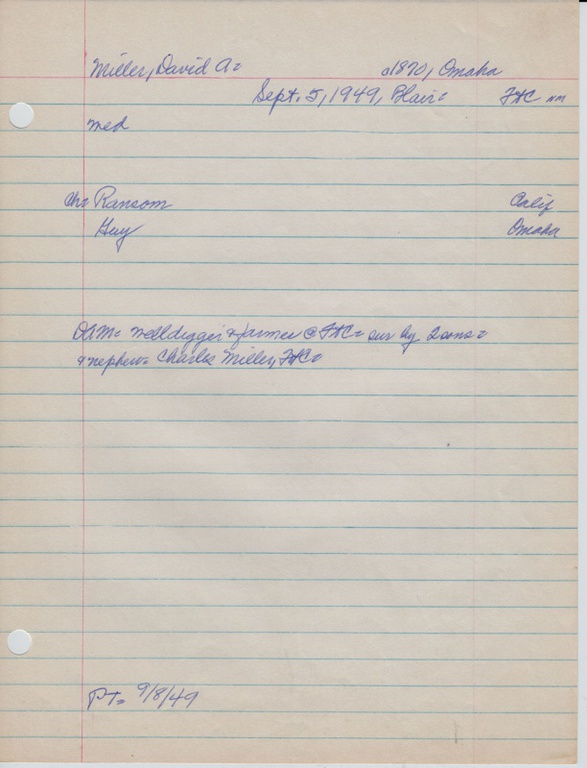 Miller, David A= a1870, Omaha
Sept. 5, 1949, Blair= FtC NM
med
ch= Ransom Calif
Guy Omaha
DAM= welldigger & farmer @ FtC= sur by 2 sons=
& nephew= Charles Miller, FtC=
PT= 9/8/49